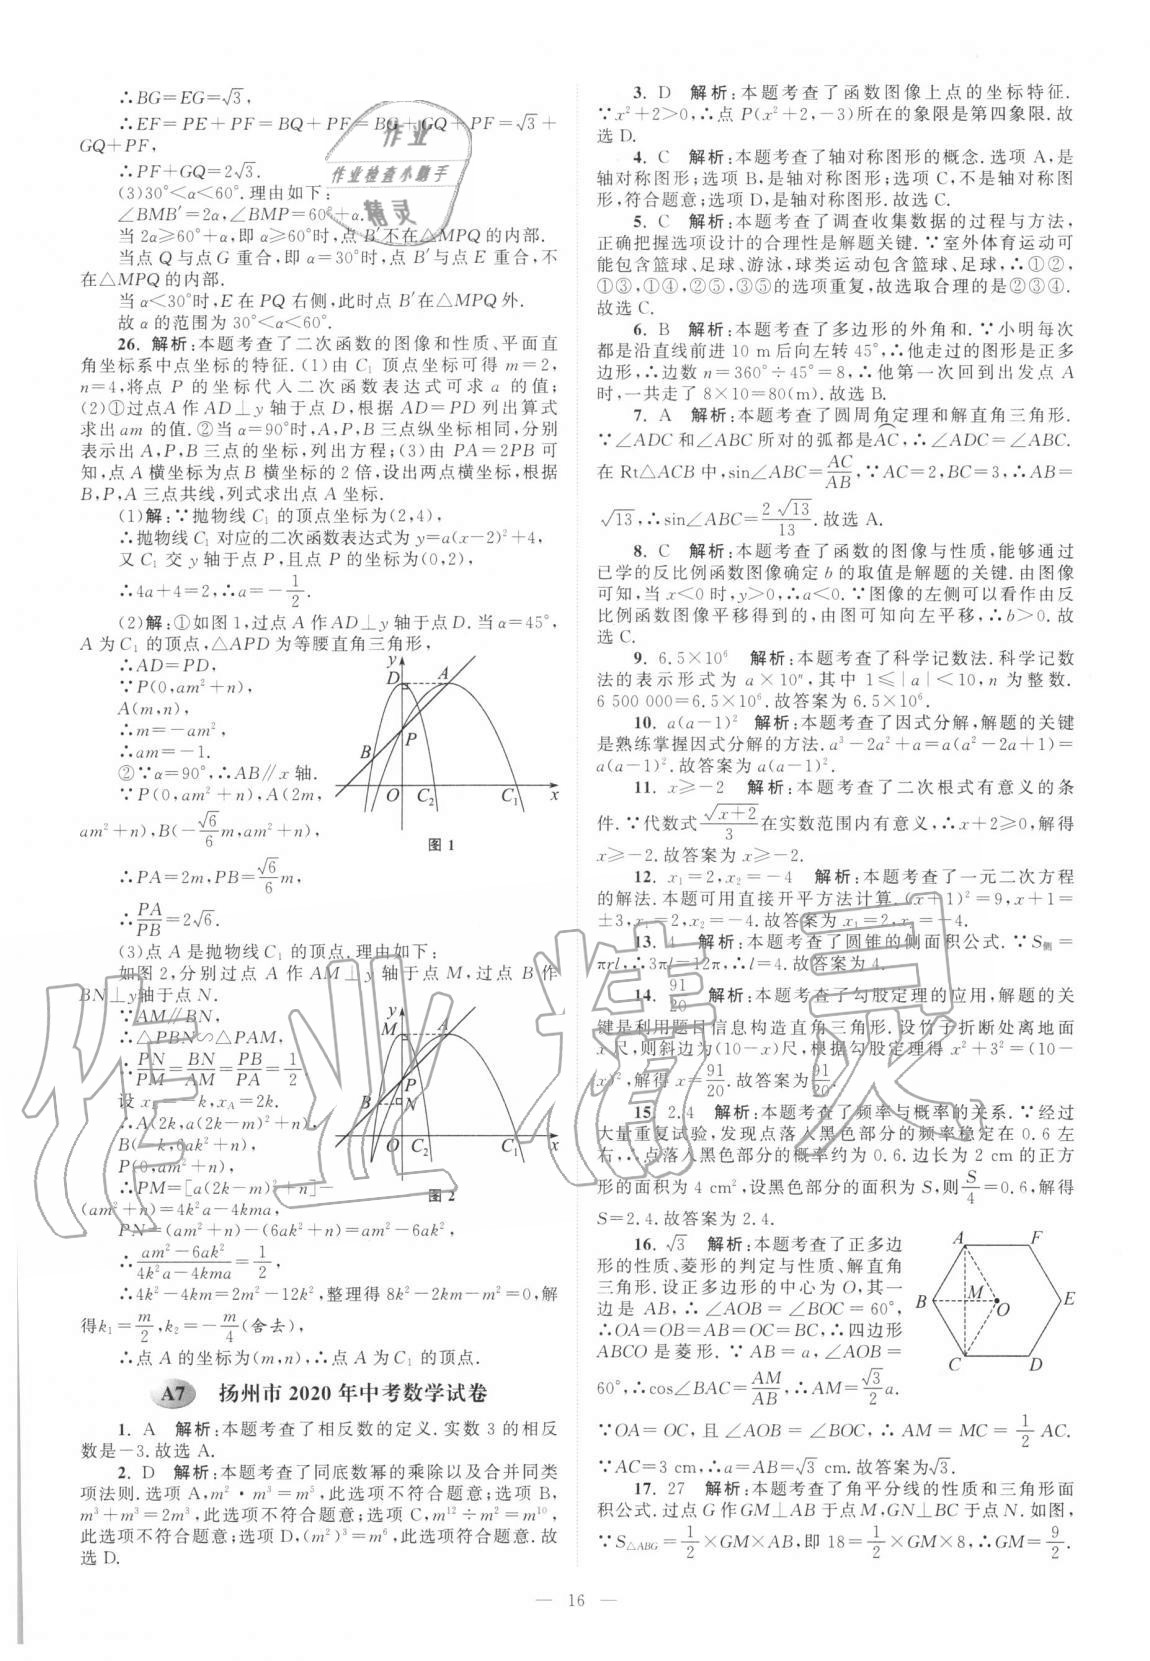 ∴BG=EG=√3,
∴EF=PE+PF=BQ+PF=BG+GQ+PF=√3+
GQ+PF,
∴PF+GQ=2√3.
(3)30°<α<60°.理由如下:
∠BMB′=2α,∠BMP=60°+α.
当2α≥60°+α,即α≥60°时,点B′不在△MPQ的内部.
当点Q与点G重合,即α=30°时,点B′与点E重合,不
在△MPQ的内部.
当α<30°时,E在PQ右侧,此时点B′在△MPQ外.
故α的范围为30°<α<60°.
26. 解析:本题考查了二次函数的图像和性质、平面直
角坐标系中点坐标的特征.(1)由C₁顶点坐标可得m=2,
n=4,将点P的坐标代入二次函数表达式可求a的值;
(2)①过点A作AD⊥y轴于点D,根据AD=PD列出算式
求出am的值.②当α=90°时,A,P,B三点纵坐标相同,分别
表示出A,P,B三点的坐标,列出方程;(3)由PA=2PB可
知,点A横坐标为点B横坐标的2倍,设出两点横坐标,根据
B,P,A三点共线,列式求出点A坐标.
(1)解:∵抛物线C₁的顶点坐标为(2,4),
∴抛物线C₁对应的二次函数表达式为y=a(x-2)²+4,
又C₁交y轴于点P,且点P的坐标为(0,2),
∴4a+4=2,∴a=-1/2.
(2)解:①如图1,过点A作AD⊥y轴于点D.当α=45°,
A为C₁的顶点,△APD为等腰直角三角形,
∴AD=PD,
∵P(0,am²+n),
A(m,n),
∴m=-am²,
∴am=-1.
②∵α=90°,∴AB∥x轴.
∵P(0,am²+n),A(2m,
am²+n),B(-√6/6m,am²+n),
y
D
A
B
P
O
C₂
C₁
x
图1
∴PA=2m,PB=√6/6m,
∴PA/PB=2√6.
(3)点A是抛物线C₁的顶点.理由如下:
如图2,分别过点A作AM⊥y轴于点M,过点B作
BN⊥y轴于点N.
∵AM∥BN,
∴△PBN∽△PAM,
∴PN/PM=BN/AM=PB/PA=1/2.
设x_B=-k,x_A=2k.
∴A(2k,a(2k-m)²+n),
B(-k,6ak²+n),
P(0,am²+n),
∴PM=[a(2k-m)²+n]-
(am²+n)=4k²a-4kma,
y
M
A
P
B
N
O
C₂
C₁
x
图2
PN=(am²+n)-(6ak²+n)=am²-6ak²,
∴am²-6ak²/4k²a-4kma=1/2,
∴4k²-4km=2m²-12k²,整理得8k²-2km-m²=0,解
得k₁=m/2,k₂=-m/4(舍去),
∴点A的坐标为(m,n),∴点A为C₁的顶点.
A7 扬州市2020年中考数学试卷
1. A 解析:本题考查了相反数的定义.实数3的相反
数是-3.故选A.
2. D 解析:本题考查了同底数幂的乘除以及合并同类
项法则.选项A,m²·m³=m⁵,此选项不符合题意;选项B,
m³+m³=2m³,此选项不符合题意;选项C,m¹²÷m²=m¹⁰,
此选项不符合题意;选项D,(m²)³=m⁶,此选项符合题意.故
选D.
3. D 解析:本题考查了函数图像上点的坐标特征.
∵x²+2>0,∴点P(x²+2,-3)所在的象限是第四象限.故
选D.
4. C 解析:本题考查了轴对称图形的概念.选项A,是
轴对称图形;选项B,是轴对称图形;选项C,不是轴对称图
形,符合题意;选项D,是轴对称图形.故选C.
5. C 解析:本题考查了调查收集数据的过程与方法,
正确把握选项设计的合理性是解题关键.∵室外体育运动可
能包含篮球、足球、游泳,球类运动包含篮球、足球,∴①②,
①③,①④,②⑤,③⑤的选项重复,故选取合理的是②③④.
故选C.
6. B 解析:本题考查了多边形的外角和.∵小明每次
都是沿直线前进10 m后向左转45°,∴他走过的图形是正多
边形,∴边数n=360°÷45°=8,∴他第一次回到出发点A
时,一共走了8×10=80(m).故选B.
7. A 解析:本题考查了圆周角定理和解直角三角形.
∵∠ADC和∠ABC所对的弧都是AC,∴∠ADC=∠ABC.
在Rt△ACB中,sin∠ABC=AC/AB,∵AC=2,BC=3,∴AB=
√13,∴sin∠ABC=2√13/13.故选A.
8. C 解析:本题考查了函数的图像与性质,能够通过
已学的反比例函数图像确定b的取值是解题的关键.由图像
可知,当x<0时,y>0,∴a<0.∵图像的左侧可以看作由反
比例函数图像平移得到的,由图可知向左平移,∴b>0.故
选C.
9. 6.5×10⁶ 解析:本题考查了科学记数法.科学记数
法的表示形式为a×10ⁿ,其中1≤|a|<10,n为整数.
6 500 000=6.5×10⁶.故答案为6.5×10⁶.
10. a(a-1)² 解析:本题考查了因式分解,解题的关键
是熟练掌握因式分解的方法.a³-2a²+a=a(a²-2a+1)=
a(a-1)².故答案为a(a-1)².
11. x≥-2 解析:本题考查了二次根式有意义的条
件.∵代数式√(x+2)/3在实数范围内有意义,∴x+2≥0,解得
x≥-2.故答案为x≥-2.
12. x₁=2,x₂=-4 解析:本题考查了一元二次方程
的解法.本题可用直接开平方法计算.(x+1)²=9,x+1=
±3,x₁=2,x₂=-4.故答案为x₁=2,x₂=-4.
13. 4 解析:本题考查了圆锥的侧面积公式.∵S侧=
πrl,∴3πl=12π,∴l=4.故答案为4.
14. 91/20 解析:本题考查了勾股定理的应用,解题的关
键是利用题目信息构造直角三角形.设竹子折断处离地面
x尺,则斜边为(10-x)尺,根据勾股定理得x²+3²=(10-
x)²,解得x=91/20.故答案为91/20.
15. 2.4 解析:本题考查了频率与概率的关系.∵经过
大量重复试验,发现点落入黑色部分的频率稳定在0.6左
右,∴点落入黑色部分的概率约为0.6.边长为2 cm的正方
形的面积为4 cm²,设黑色部分的面积为S,则S/4=0.6,解得
S=2.4.故答案为2.4.
16. √3 解析:本题考查了正多边
形的性质、菱形的判定与性质、解直角
三角形.设正多边形的中心为O,其一
边是AB,∴∠AOB=∠BOC=60°,
∴OA=OB=AB=OC=BC,∴四边形
ABCO是菱形.∵AB=a,∠AOB=
60°,∴cos∠BAC=AM/AB,∴AM=√3/2a.
A
F
B
M
O
E
C
D
∵OA=OC,且∠AOB=∠BOC,∴AM=MC=1/2AC.
∵AC=3 cm,∴a=AB=√3 cm.故答案为√3.
17. 27 解析:本题考查了角平分线的性质和三角形面
积公式.过点G作GM⊥AB于点M,GN⊥BC于点N.如图,
∵S△ABG=1/2×GM×AB,即18=1/2×GM×8,∴GM=9/2.
— 16 —
作业
作业检查小助手
精灵
作业精灵